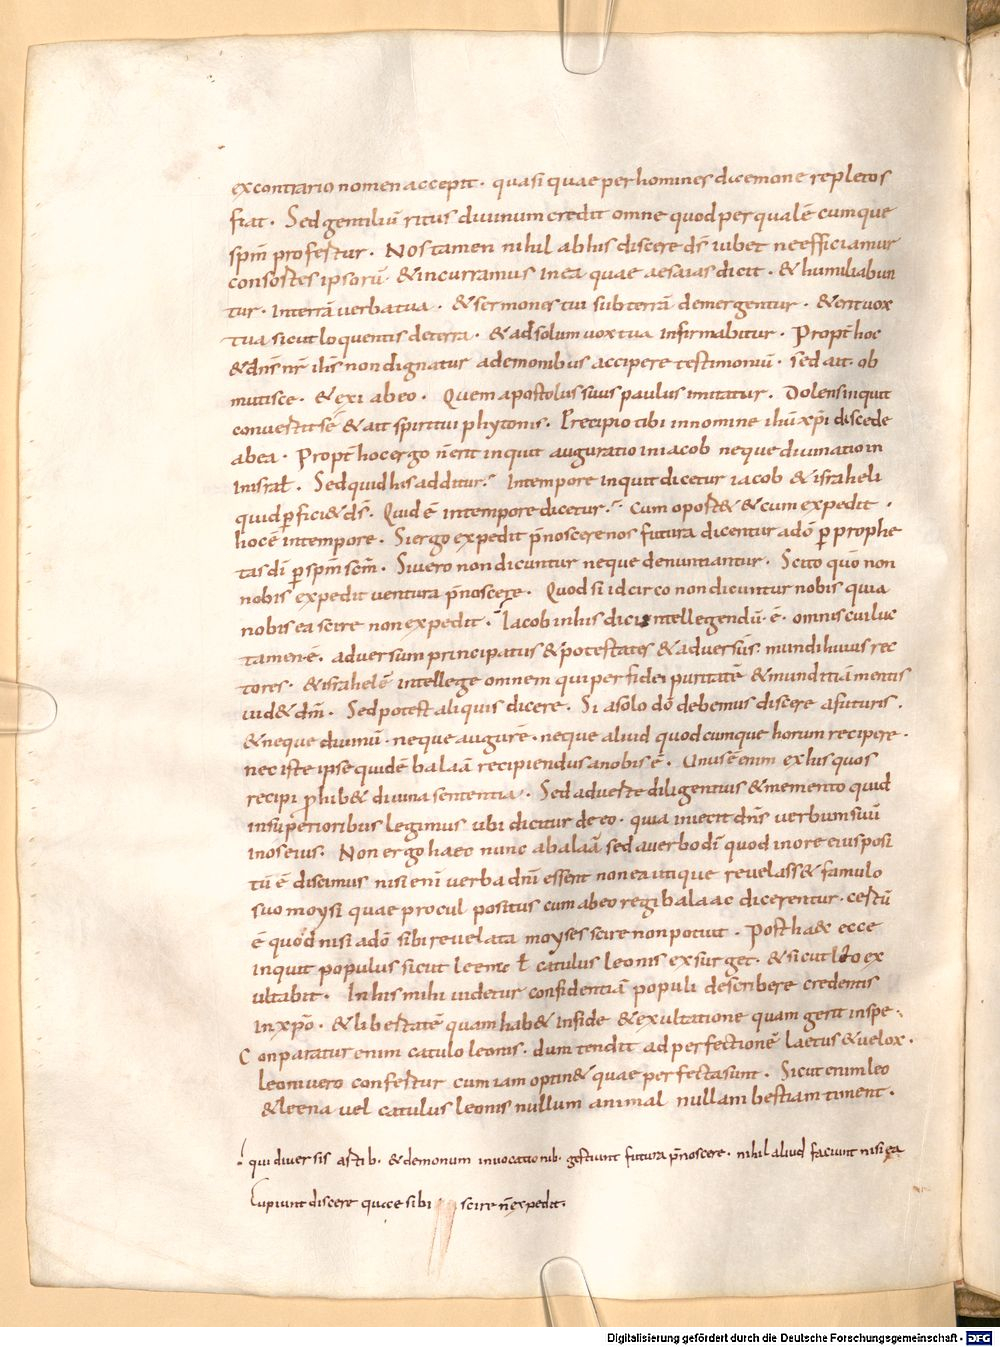 excontrario nomen accepit · quasi quae per homines dicemone repletos
fiat · Sed gentiliū ritus diuinum credit omne quod per qualē cumque
spm̄ profertur · Nos tamen nihil ab his discere ds̄ iubet ne efficiamur
consortes ipsorū · & incurramus in ea quae aesaias dicit · & humiliabun
tur · in terrā uerba tua · & sermones tui sub terrā demergentur · & erit uox
tua sicut loquentis de terra · & ad solum uox tua infirmabitur · Propt̄ hoc
& dn̄s nr̄ ih̄s non dignatur a demonibus accipere testimoniū · sed ait · ob
mutisce · & exi ab eo · Quem apostolus suus paulus imitatur · Dolens inquit
conuertit sē & ait spiritui phytonis · Precipio tibi in nomine ih̄u xp̄i discede
ab ea · Propt̄ hoc ergo n̄ erit inquit auguratio in iacob neque diuinatio in
in isrl̄ · Sed quid his additur · In tempore inquit dicetur iacob & israheli
quid p̄fici& ds̄ · Quid ē in tempore dicetur · Cum oport& & cum expedit ·
hoc ē in tempore · Si ergo expedit p̄noscere nos futura dicentur a dō p̄ prophe
tas dī p̄ spm̄ scm̄ · Si uero non dicuntur neque denuntiantur · Scito quō non
nobis expedit uentura p̄noscere · Quod si idcirco non dicuntur nobis quia
nobis ea scire non expedit · Iacob in his dici intellegendū · ē · omnis cui luc
tamen · ē · aduersum principatus & potestates & aduersus mundi huius rec
tores · & israhelē intellege omnem qui per fidei puritatē & munditiā mentis
uid& dm̄ · Sed potest aliquis dicere · Si a solo dō debemus discere a futuris ·
& neque diuinū · neque augurē · neque aliud quodcumque horum recipere ·
nec iste ipse quidē balaā recipiendus a nobis ē · Unus ē enim ex his quos
recipi prohib& diuina sententia · Sed aduerte diligentius & memento quid
in superioribus legimus ubi dicitur de eo · quia iniecit dn̄s uerbum suū
in os eius · Non ergo haec nunc a balaā sed a uerbo dī quod in ore eius posi
tū ē discimus nisi enī uerba dn̄i essent non ea utique reuelass& famulo
suo moysi quae procul positus cum ab eo regi balaac dicerentur · certū
ē quod nisi a dō sibi reuelata moyses scire non potuit · Post ha& ecce
inquit populus sicut leene ł catulus leonis exsurget · & sicut leo ex
ultabit · In his mihi uidetur confidentiā populi describere credentis
in xp̄o · & libertatē quam hab& in fide & exultatione quam gerit in spe ·
Conparatur enim catulo leonis · dum tendit ad perfectionē laetus & uelox ·
leoni uero confertur cum iam optin& quae perfecta sunt · Sicut enim leo
& leena uel catulus leonis nullum animal nullam bestiam timent ·
qui diuersis artib · & demonum inuocationib · gestiunt futura p̄noscere · nihil aliud faciunt nisi ea
Cupiunt discere quae sibi scire n̄ expedit ·
Digitalisierung gefördert durch die Deutsche Forschungsgemeinschaft - DFG